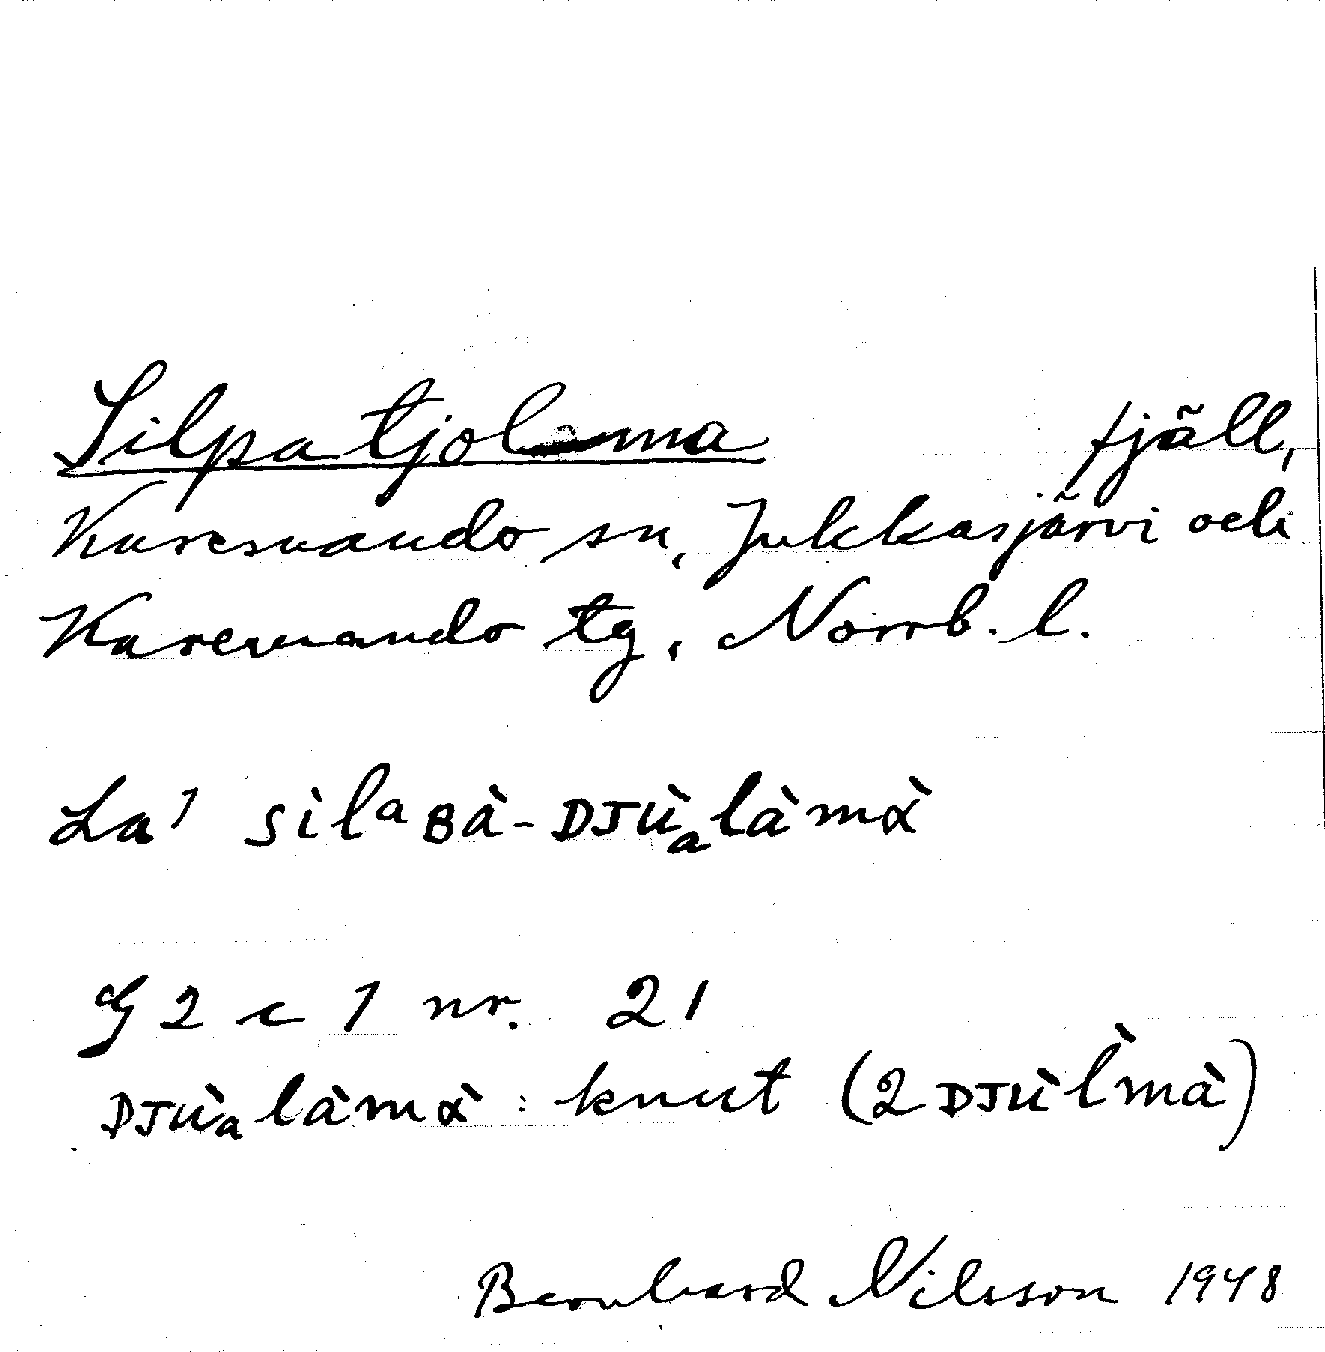 Silpatjolma fjäll,
Karesuando sn, Jukkasjärvi och
Karesuando tg, Norrb. l.
La' sìlᵃʙà-ᴅᴊùₐlàmὰ
G 2 c 1 nr. 21
ᴅᴊùₐlàmὰ : knut (2 ᴅᴊùl̀mà)
Bernhard Nilsson 1948